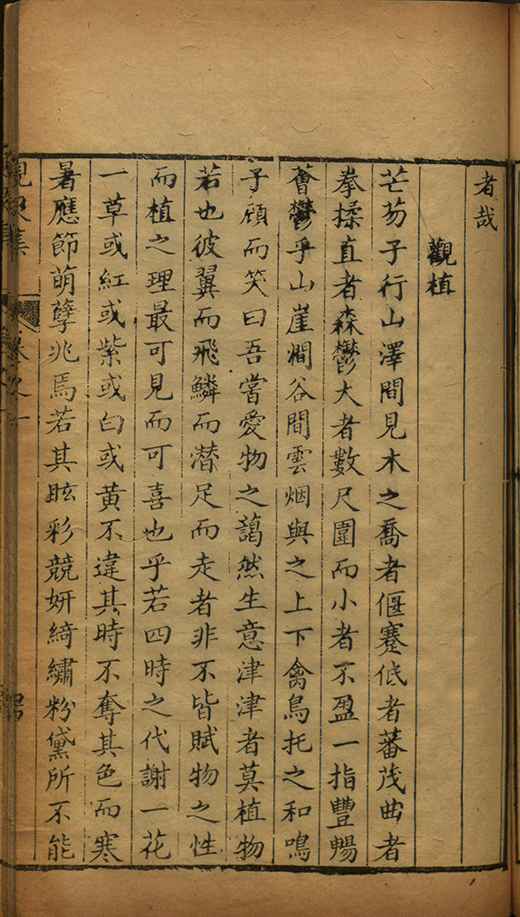 者哉
觀植
芒芴子行山澤間見木之喬者偃蹇低者蕃茂曲者
拳揉直者森鬱大者數尺圍而小者不盈一指豐暢
薈鬱乎山崖澗谷間雲烟與之上下禽鳥托之和鳴
子顧而笑曰吾嘗愛物之藹然生意津津者莫植物
若也彼翼而飛鱗而潛足而走者非不皆賦物之性
而植之理最可見而可喜也乎若四時之代謝一花
一草或紅或紫或白或黃不違其時不奪其色而寒
暑應節萌孽兆焉若其眩彩競妍綺繡粉黛所不能